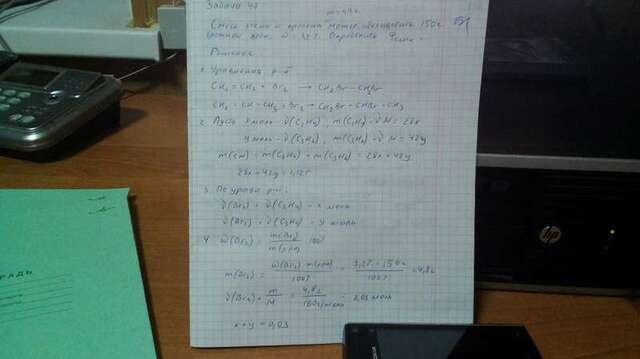 Задача 47
m = 1,12г
Смесь этена и пропена может обесцветить 150г
бромной воды, ω = 3,2%. Определить φ смеси.
Решение
1. Уравнения р-й
CH₂ = CH₂ + Br₂ → CH₂Br - CH₂Br
CH₂ = CH - CH₃ + Br₂ → CH₂Br - CHBr - CH₃
2. Пусть x моль - ν(C₂H₄), m(C₂H₄) = νM = 28x
y моль - ν(C₃H₆), m(C₃H₆) = νM = 42y
m(см) = m(C₂H₄) + m(C₃H₆) = 28x + 42y
28x + 42y = 1,12г
3. По уравн. р-й:
ν(Br₂) = ν(C₂H₄) = x моль
ν(Br₂) = ν(C₃H₆) = y моль
4. ω(Br₂) = m(Br₂) / m(р-ра) · 100%
m(Br₂) = ω(Br₂) · m(р-ра) / 100% = 3,2% · 150г / 100% = 4,8г
ν(Br₂) = m / M = 4,8г / 160г/моль = 0,03 моль
x + y = 0,03
hp